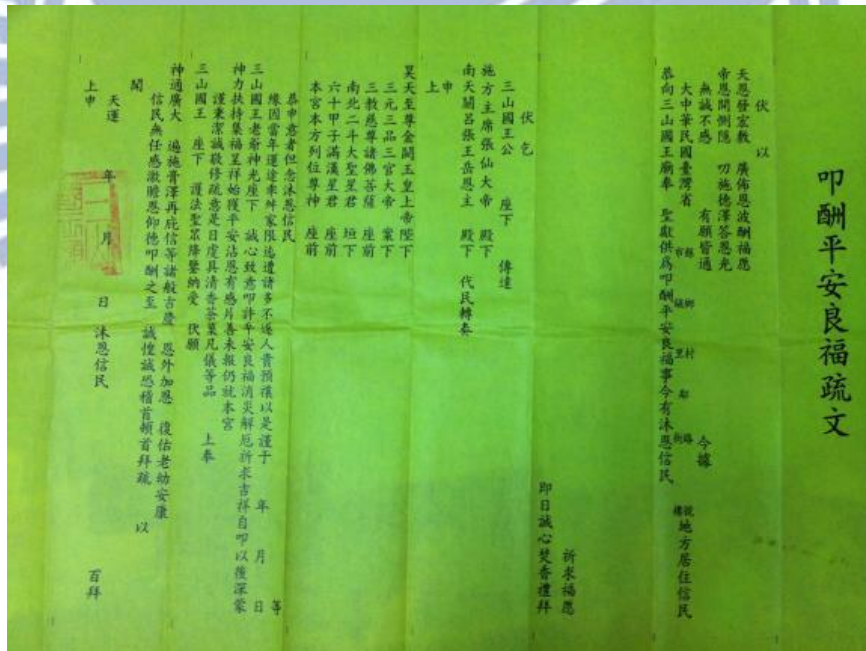 叩酬平安良福疏文
伏以
天恩發宏教 廣佈恩波酬福愿
帝恩開惻隱 叨施德澤答恩光
無誠不感 有願皆通
大中華民國臺灣省 縣市 鄉鎮 村里 鄰 路街 號樓 地方居住信民
今據
恭向三山國王廟奉 聖獻供為叩酬平安良福事今有沐恩信民
祈求福愿
即日誠心焚香禮拜
伏乞
三山國王公 座下 傳達
施方主席張仙大帝 殿下
南天關呂張王岳恩主 殿下 代民轉奏
上申
昊天至尊金闕玉皇上帝陛下
三元三品三官大帝 案下
三教慈尊諸佛菩薩 座前
南北二斗大聖星君 垣下
六十甲子滿漢星君 座前
本宮本方列位尊神 座前
恭申意者但念沐恩信民 等
緣因當年運途乖舛家限迍邅諸多不遂人貴預禳以是謹于 年 月 日
三山國王老爺神光座下 誠心致意叩許平安良福消災解厄祈求吉祥自叩以後深蒙
神力扶持集福呈祥始獲平安沾恩有感片善未報仍就本宮
謹秉潔誠敬修疏意是日虔具清香茶菓凡儀等品 上奉
三山國王 座下 護法聖眾降鑒納受 伏願
神通廣大 遍施膏澤再庇信等諸般吉慶 恩外加恩 復佑老幼安康
信民無任感激瞻恩仰德叩酬之至 誠惶誠恐稽首頓首拜疏 以
聞
天運 年 月 日 沐恩信民 百拜
上申